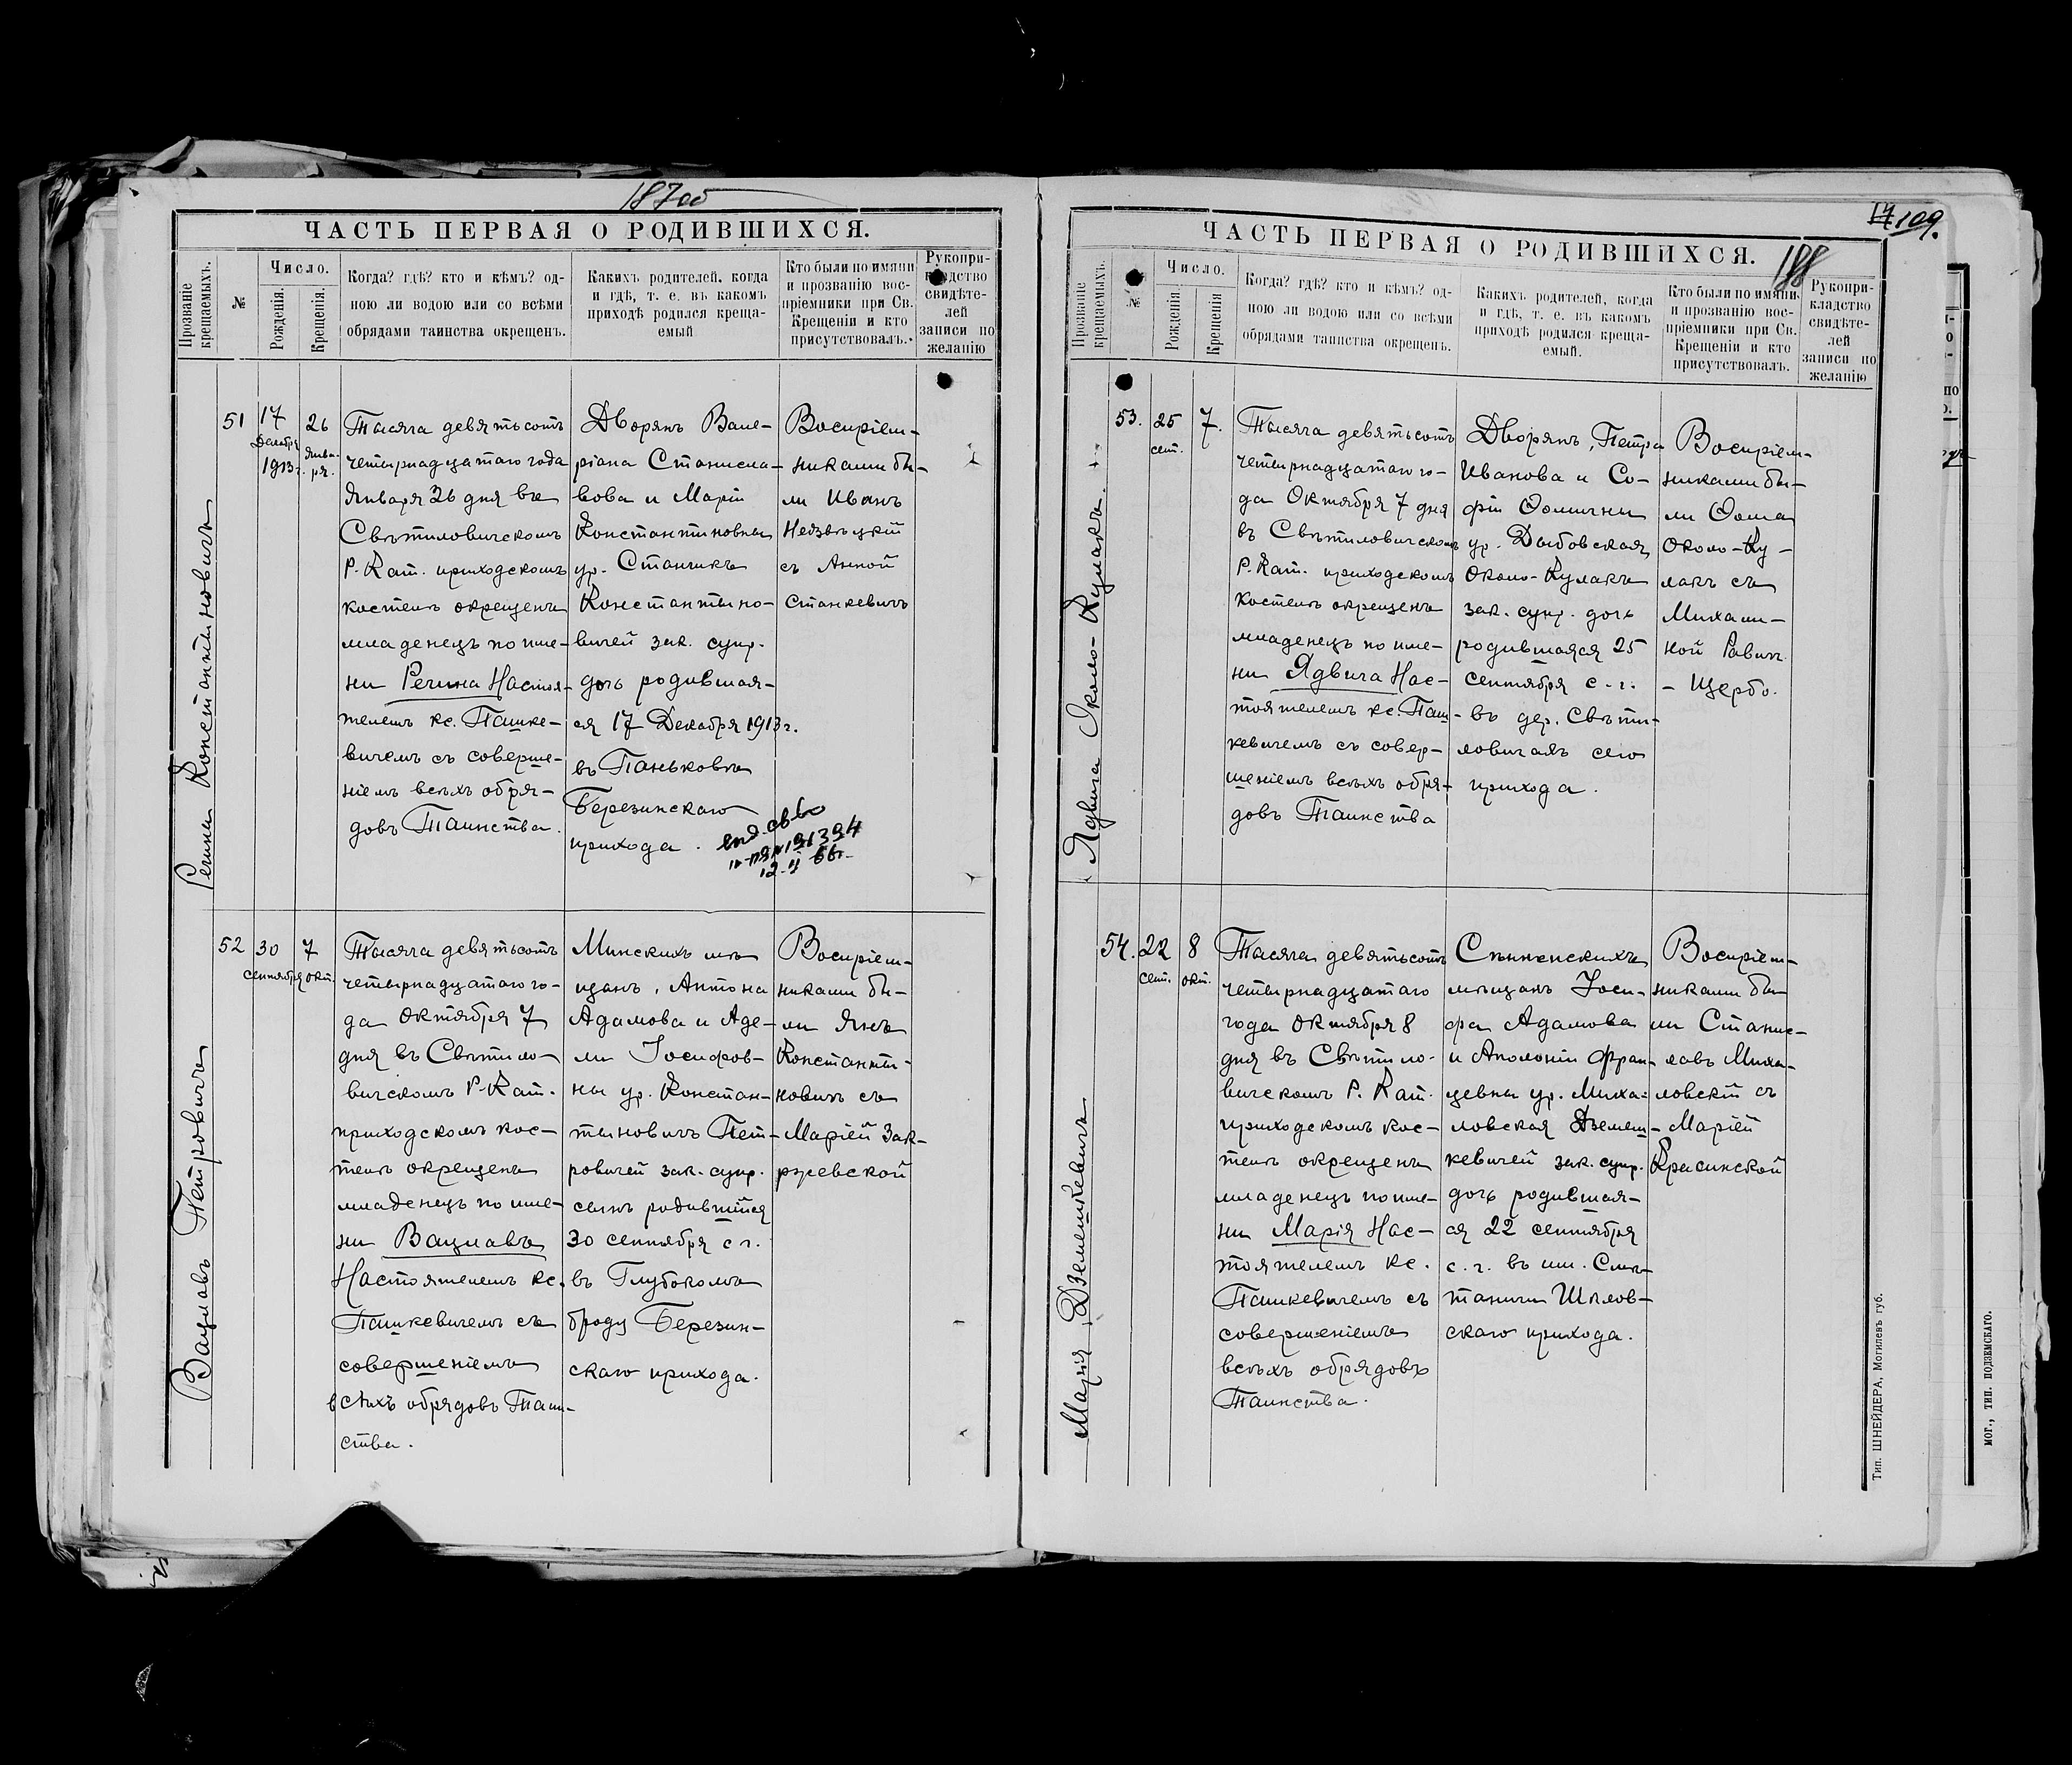 187 об
ЧАСТЬ ПЕРВАЯ О РОДИВШИХСЯ.
Прозваніе крещаемыхъ.
№
Число.
Рожденія.
Крещенія.
Когда? гдѣ? кто и кѣмъ? од-
ною ли водою или со всѣми
обрядами таинства окрещенъ.
Какихъ родителей, когда
и гдѣ, т. е. въ какомъ
приходѣ родился креща-
емый
Кто были по имяни
и прозванію вос-
пріемники при Св.
Крещеніи и кто
присутствовалъ.
Рукопри-
кладство
свидѣте-
лей
записи по
желанію
Регина Константиновичъ
51
17
Декабря
1913 г.
26
Янва-
ря.
Тысяча девятьсотъ
четырнадцатаго года
Января 26 дня въ
Свѣтиловичскомъ
Р. Кат. приходскомъ
костелѣ окрещенъ
младенецъ по име-
ни Регина Настоя-
телемъ кс. Пашке-
вичемъ съ соверше-
ніемъ всѣхъ обря-
довъ Таинства.
Дворянъ Вале-
ріана Станисла-
вова и Маріи
Константиновны
ур. Станчикъ
Константино-
вичей зак. супр.
дочь родившая-
ся 17 Декабря 1913 г.
въ Паньковѣ
Березинскаго
прихода.
Воспріем-
никами бы-
ли Иванъ
Недзвѣцкій
съ Анной
Станкевичъ
Вацлавъ Петровичъ
52
30
сентября
7
окт.
Тысяча девятьсотъ
четырнадцатаго го-
да Октября 7
дня въ Свѣтило-
вичскомъ Р. Кат.
приходскомъ кос-
телѣ окрещенъ
младенецъ по име-
ни Вацлавъ
Настоятелемъ кс.
Пашкевичемъ съ
совершеніемъ
всѣхъ обрядовъ Таин-
ства.
Минскихъ мѣ
щанъ, Антона
Адамова и Аде-
ли Іосифов-
ны ур. Констан-
тиновичъ Пет-
ровичей зак. супр.
сынъ родившійся
30 сентября с г.
въ Глубокомъ
броду Березин-
скаго прихода.
Воспріем-
никами бы-
ли Янъ
Константи-
новичъ съ
Маріей Зак-
ржевской
17 109.
188
ЧАСТЬ ПЕРВАЯ О РОДИВШИХСЯ.
Прозваніе крещаемыхъ.
№
Число.
Рожденія
Крещенія
Когда? гдѣ? кто и кѣмъ? од-
ною ли водою или со всѣми
обрядами таинства окрещенъ.
Какихъ родителей, когда
и гдѣ, т. е. въ какомъ
приходѣ родился креща-
емый.
Кто были по имяни
и прозванію вос-
пріемники при Св.
Крещеніи и кто
присутствовалъ.
Рукопри-
кладство
свидѣте-
лей
записи по
желанію
Ядвига Около-Кулакъ.
53.
25
сент.
7.
Тысяча девятьсотъ
четырнадцатаго го-
да Октября 7 дня
въ Свѣтиловичскомъ
Р. Кат. приходскомъ
костелѣ окрещенъ
младенецъ по име-
ни Ядвига Нас-
тоятелемъ кс. Паш-
кевичемъ съ совер-
шеніемъ всѣхъ обря-
довъ Таинства
Дворянъ, Петра
Иванова и Со-
фіи Ѳомичны
ур. Дыбовская
Около-Кулакъ
зак. супр. дочь
родившаяся 25
сентября с. г.
въ дер. Свѣти-
ловичахъ сего
прихода.
Воспріем-
никами бы-
ли Ѳома
Около-Ку-
лакъ съ
Михали-
ной Равич.
- Щербо.
Марія Дземешкевичъ
54.
22
сент.
8
окт.
Тысяча девятьсотъ
четырнадцатаго
года Октября 8
дня въ Свѣтило-
вичскомъ Р. Кат.
приходскомъ кос-
телѣ окрещенъ
младенецъ по име-
ни Марія Нас-
тоятелемъ кс.
Пашкевичемъ съ
совершеніемъ
всѣхъ обрядовъ
Таинства.
Сѣнненскихъ
мѣщанъ Іоси-
фа Адамова
и Аполоніи Фран-
цевны ур. Миха-
ловская Дземеш-
кевичей зак. супр.
дочь родившая-
ся 22 сентября
с. г. въ им. Смѣ-
таничи Шклов-
скаго прихода.
Воспріем-
никами бы
ли Станис-
лавъ Миха-
ловскій съ
Маріей
Красинской
Тип. ШНЕЙДЕРА, Могилевъ губ.
МОГ., ТИП. ПОДЗЕМСКАГО.